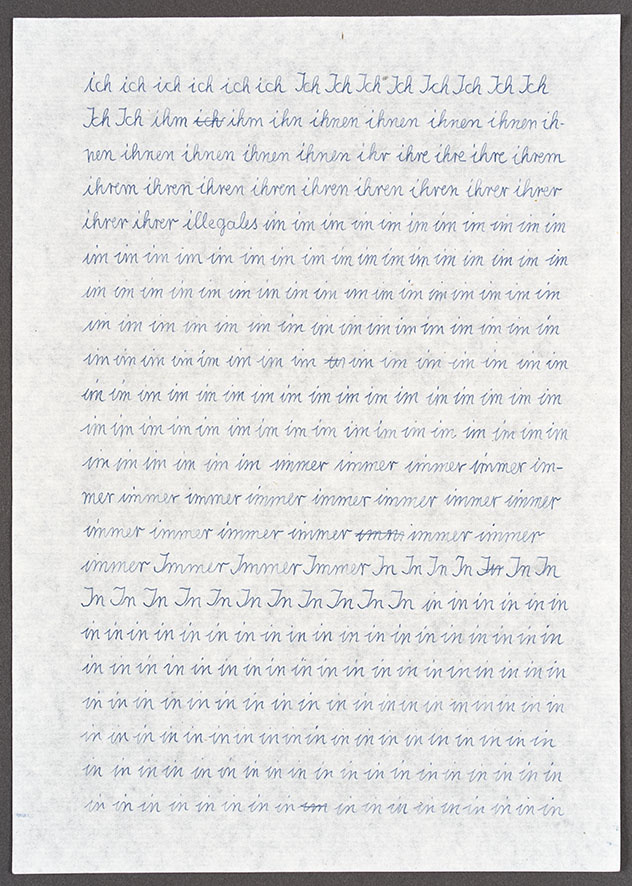 ich ich ich ich ich ich Ich Ich Ich Ich Ich Ich Ich Ich
Ich Ich ihm ich ihm ihn ihnen ihnen ihnen ihnen ih-
nen ihnen ihnen ihnen ihnen ihr ihre ihre ihre ihrem
ihrem ihren ihren ihren ihren ihren ihren ihrer ihrer
ihrer ihrer illegales im im im im im im im im im im im
im im im im im im im im im im im im im im im im im
im im im im im im im im im im im im im im im im im
im im im im im im im im im im im im im im im im
im im im im im im im im im im im im im im im
im im im im im im im im im im im im im im im im im
im im im im im im im im im im im im im im im im im
im im im im im im immer immer immer immer im-
mer immer immer immer immer immer immer immer
immer immer immer immer imm immer immer
immer Immer Immer Immer In In In In Im In In
In In In In In In In In In In In in in in in in in
in in in in in in in in in in in in in in in in in in in
in in in in in in in in in in in in in in in in in in in
in in in in in in in in in in in in in in in in in in
in in in in in in in in in in in in in in in in in in in
in in in in in in in in in in in in in in in in in in
in in in in in in in in im in in in in in in in in in